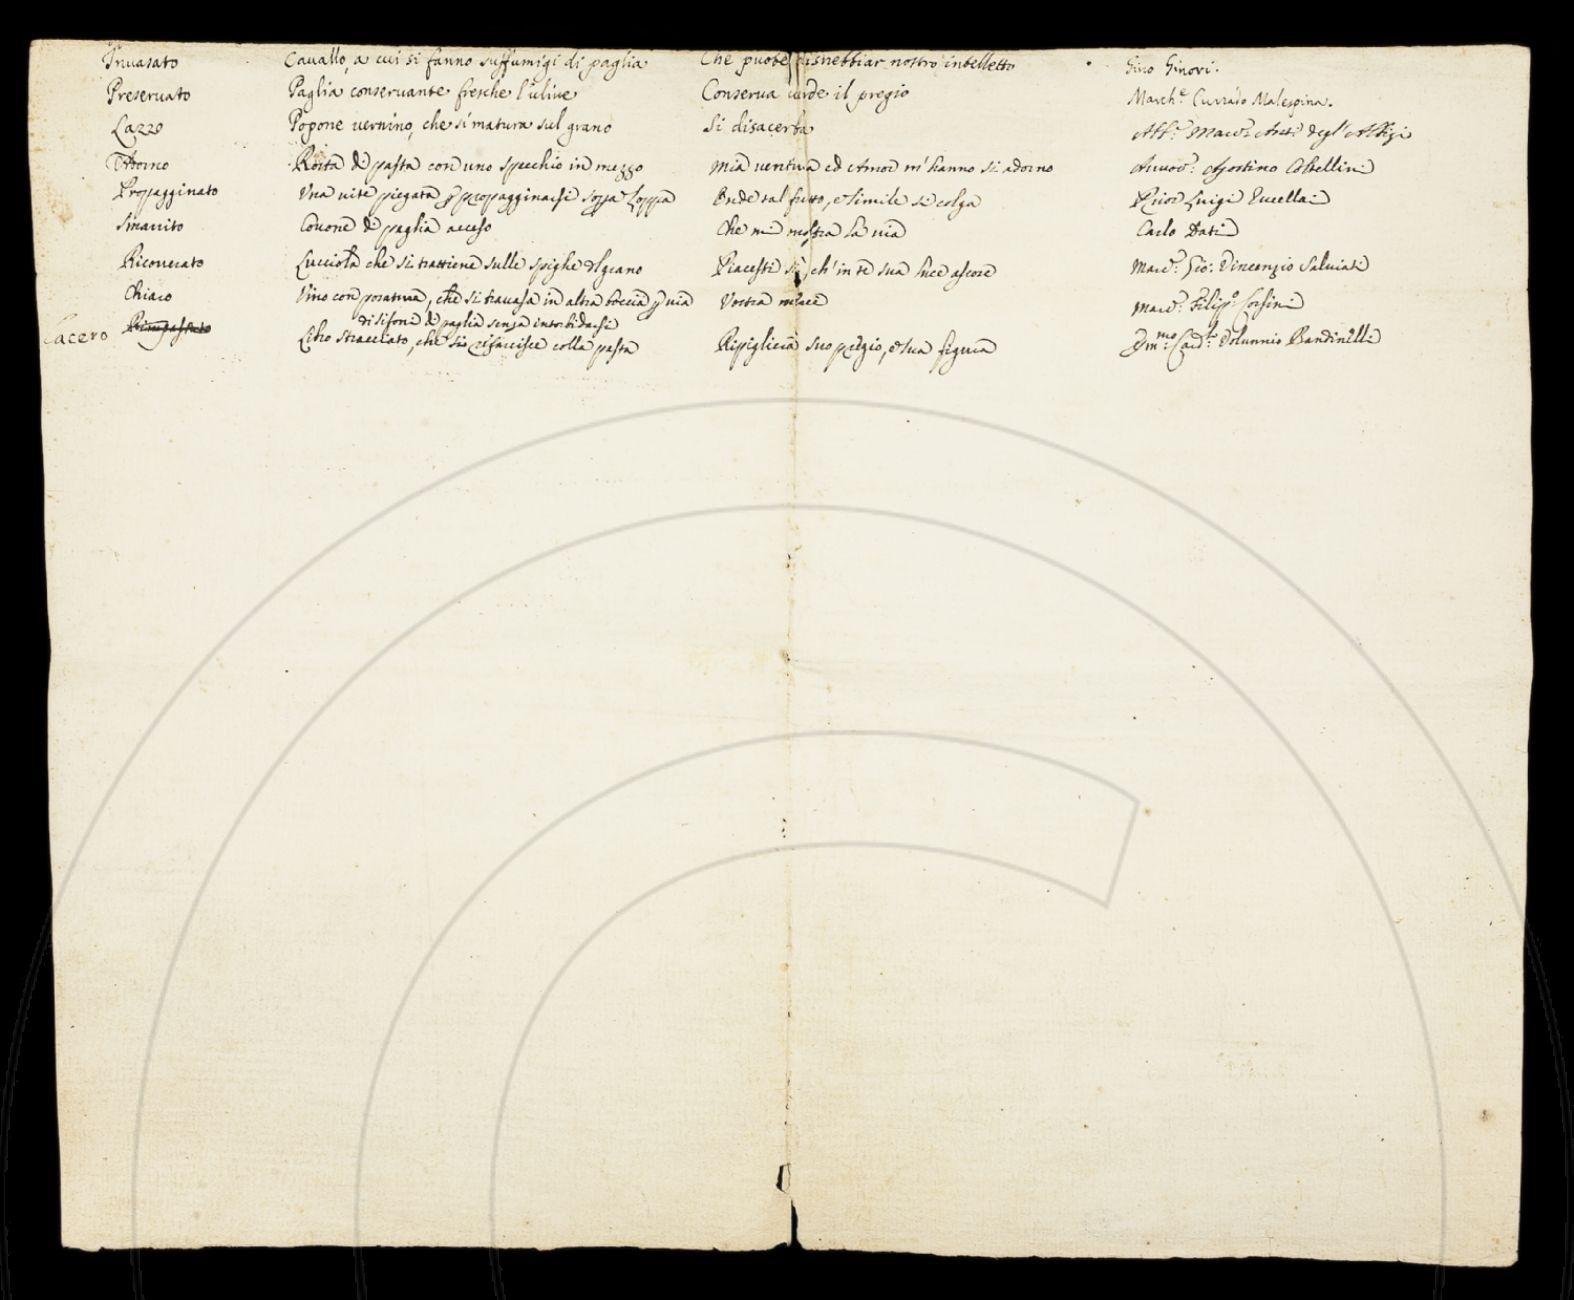 Inuasato Cauallo, a cui si fanno suffumigi di paglia Che puote disnebbiar nostro intelletto Gino Ginori.
Preseruato Paglia conseruante fresche l'uliue Conserua uerde il pregio March.e Currado Malespina.
Lazzo Popone uernino, che si matura sul grano Si disacerba Mar.e Ant.o degl' Albizi
Adorno Rosta di pasta con uno specchio in mezzo Mia uentura ed Amor m'hanno si adorno Agostino Coltellini
Propagginato Vna uite piegata p propagginarsi sopra Loppa Onde tal frutto, e simile si colga Prior Luigi Rucellai
Smarrito Couone di paglia acceso Che mi mostra la uia Carlo Dati
Ricouerato Lucciola che si trattiene sulle spighe del grano Piacesti si, ch'in te sua luce ascose Marc.e Gio: Vincenzio Saluiati
Chiaro Vino con posatura, che si trauasa in altra boccia p uia Vostra mercè Marc.e Filipp.o Corsini
di sifone di paglia senza intorbidarsi
Lacero Rimpastato Libro stracciato, che si risarcisce colla pasta Ripiglierà suo pregio, e sua figura Em.mo Card.le Volunnio Bandinelli